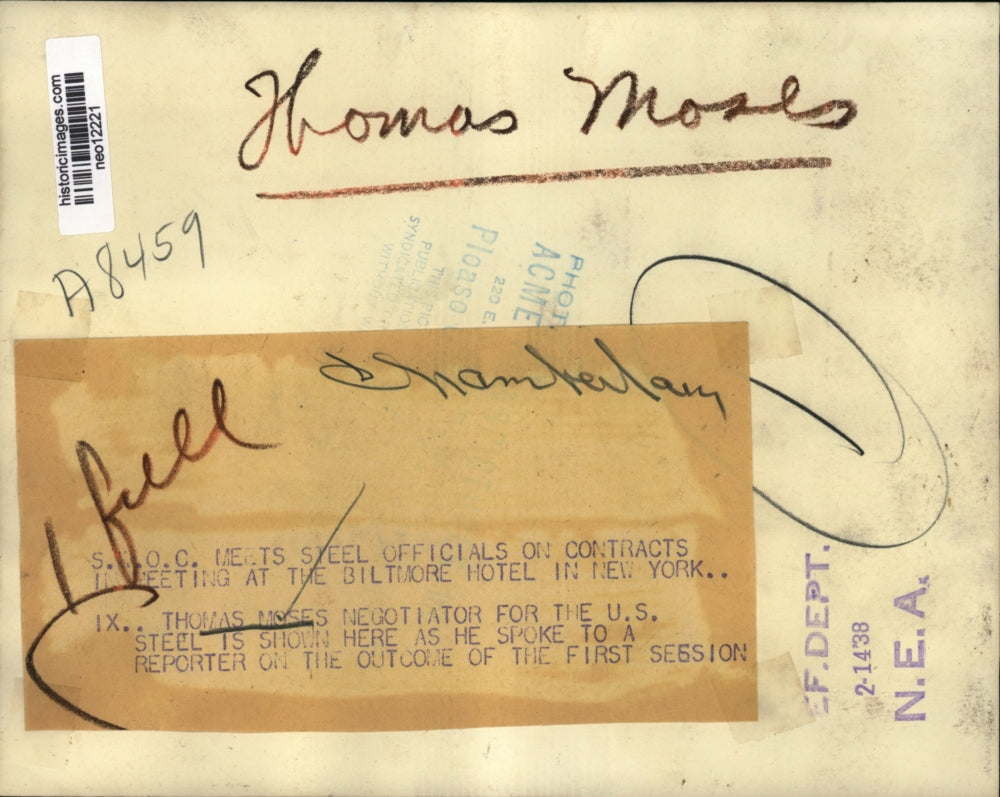 historicimages.com
neo12221
Thomas Moses
A8459
PHOT
ACME
220 E.
Please
THIS PIC
PUBLICATIO
SYNDICATED
Chamberlain
1 full
S. .O.C. MEETS STEEL OFFICIALS ON CONTRACTS
IN MEETING AT THE BILTMORE HOTEL IN NEW YORK..
IX.. THOMAS MOSES NEGOTIATOR FOR THE U.S.
STEEL IS SHOWN HERE AS HE SPOKE TO A
REPORTER ON THE OUTCOME OF THE FIRST SESSION
EF.DEPT.
2-14'38
N.E.A.